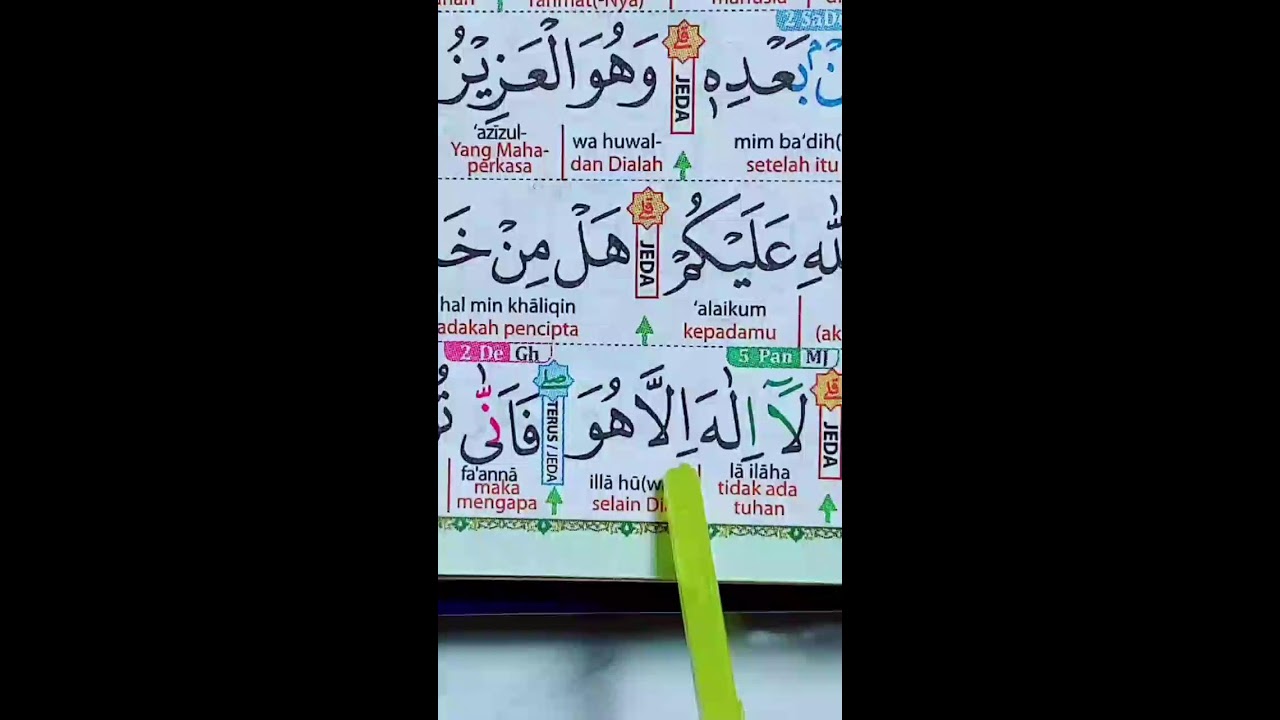 rahmat(-Nya)
2 SaD
بَعْدِهٖ ۗ وَهُوَ الْعَزِيْزُ
JEDA
mim ba‘dih( wa huwal- ‘azīzul-
setelah itu dan Dialah Yang Maha-
perkasa
اللّٰهِ عَلَيْكُمْ ۗ هَلْ مِنْ
JEDA
‘alaikum hal min khāliqin
(ak kepadamu adakah pencipta
5 Pan MJ 2 De Gh
لَآ اِلٰهَ اِلَّا هُوَ ۖ فَاَنّٰى
JEDA TERUS / JEDA
lā ilāha illā hū(w fa'annā
tidak ada selain maka
tuhan mengapa